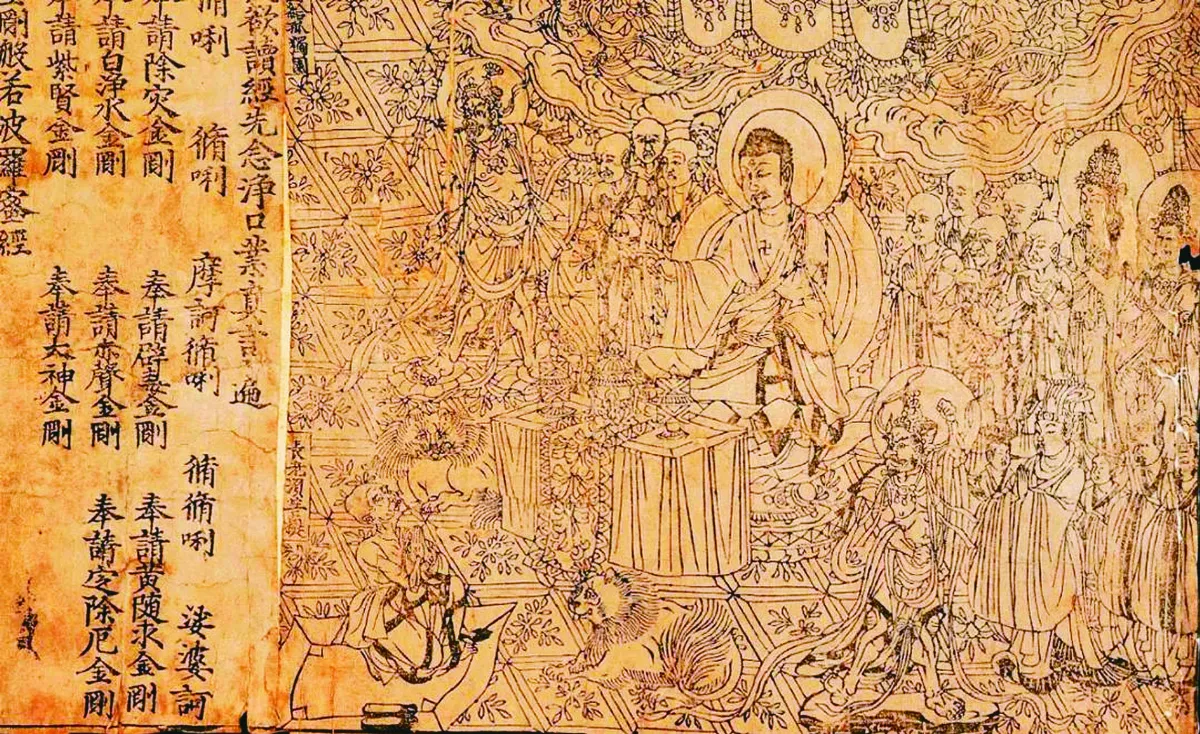 孤獨園
長老須菩提
欲讀經先念淨口業真言一遍
脩唎 脩唎 摩訶脩唎 脩脩唎 娑婆訶
奉請除灾金剛 奉請辟毒金剛 奉請黃隨求金剛
奉請白淨水金剛 奉請赤聲金剛 奉請定除厄金剛
奉請紫賢金剛 奉請大神金剛
剛般若波羅蜜經